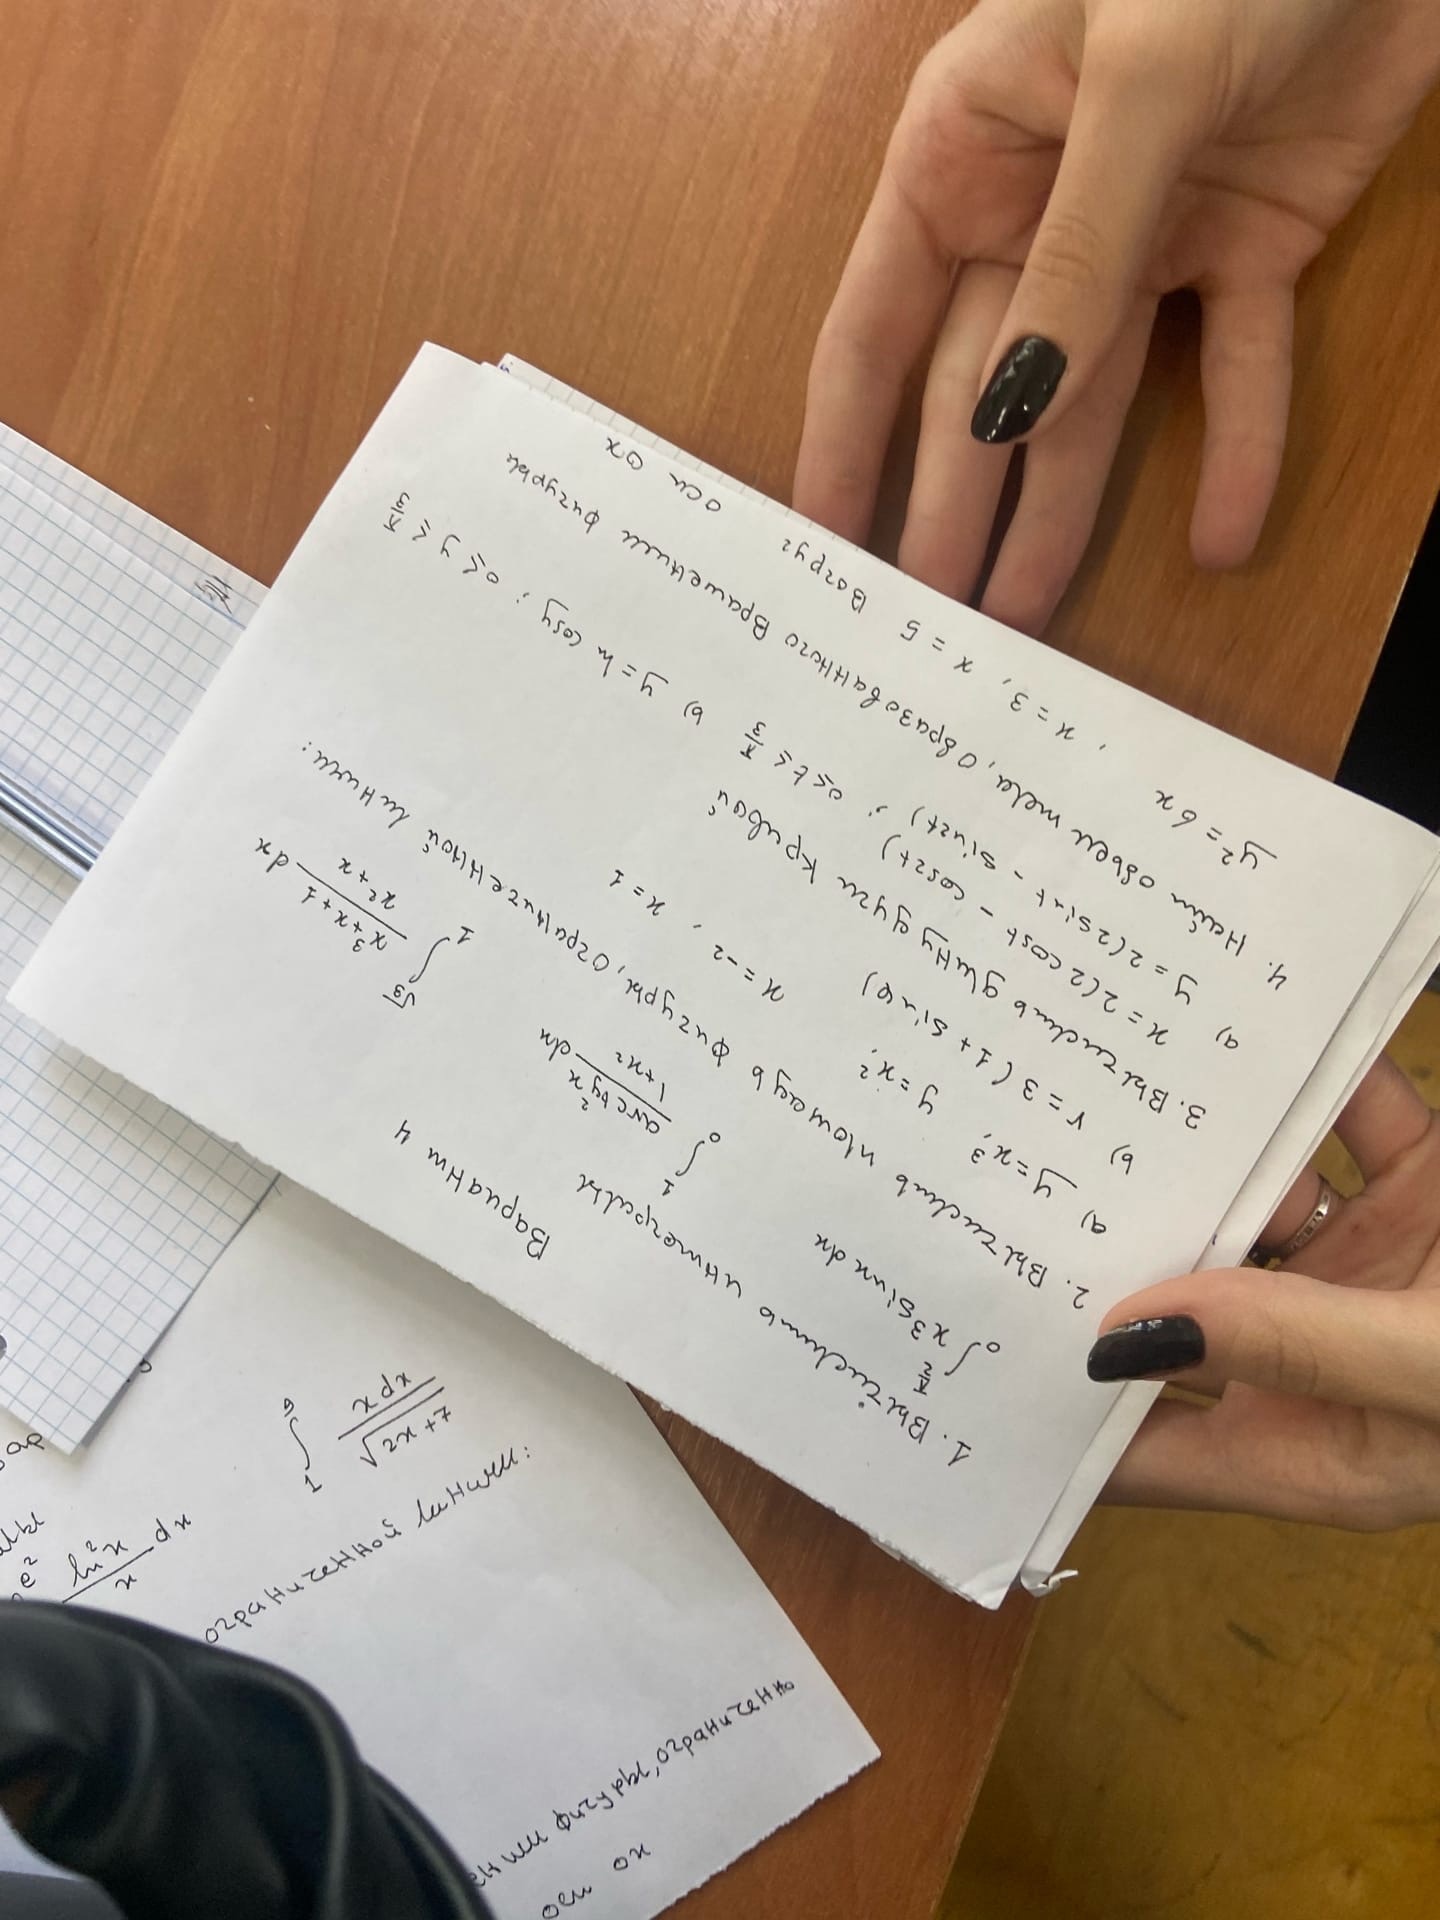 Вариант 4
1. Вычислить интегралы
∫₀^(π/2) x³ sinx dx   ∫₀¹ arctg²x / (1+x²) dx   ∫₁^√3 (x³+x+1) / (x²+x) dx
2. Вычислить площадь фигуры, ограниченной линиями:
a) y = x³, y = x², x = -2, x = 1
b) r = 3(1 + sin φ)
3. Вычислить длину дуги кривой
a) x = 2(2cost - cos2t)
y = 2(2sint - sin2t); 0 ≤ t ≤ π/3   b) y = ln cosy; 0 ≤ y ≤ π/3
4. Найти объем тела, образованного вращением фигуры
y² = 6x, x = 3, x = 5   вокруг оси ox
e²
ln²x / x dx
∫₁⁹ x dx / √(2x+7)
ограниченной линиями:
фигуры, ограниченно
оси ox